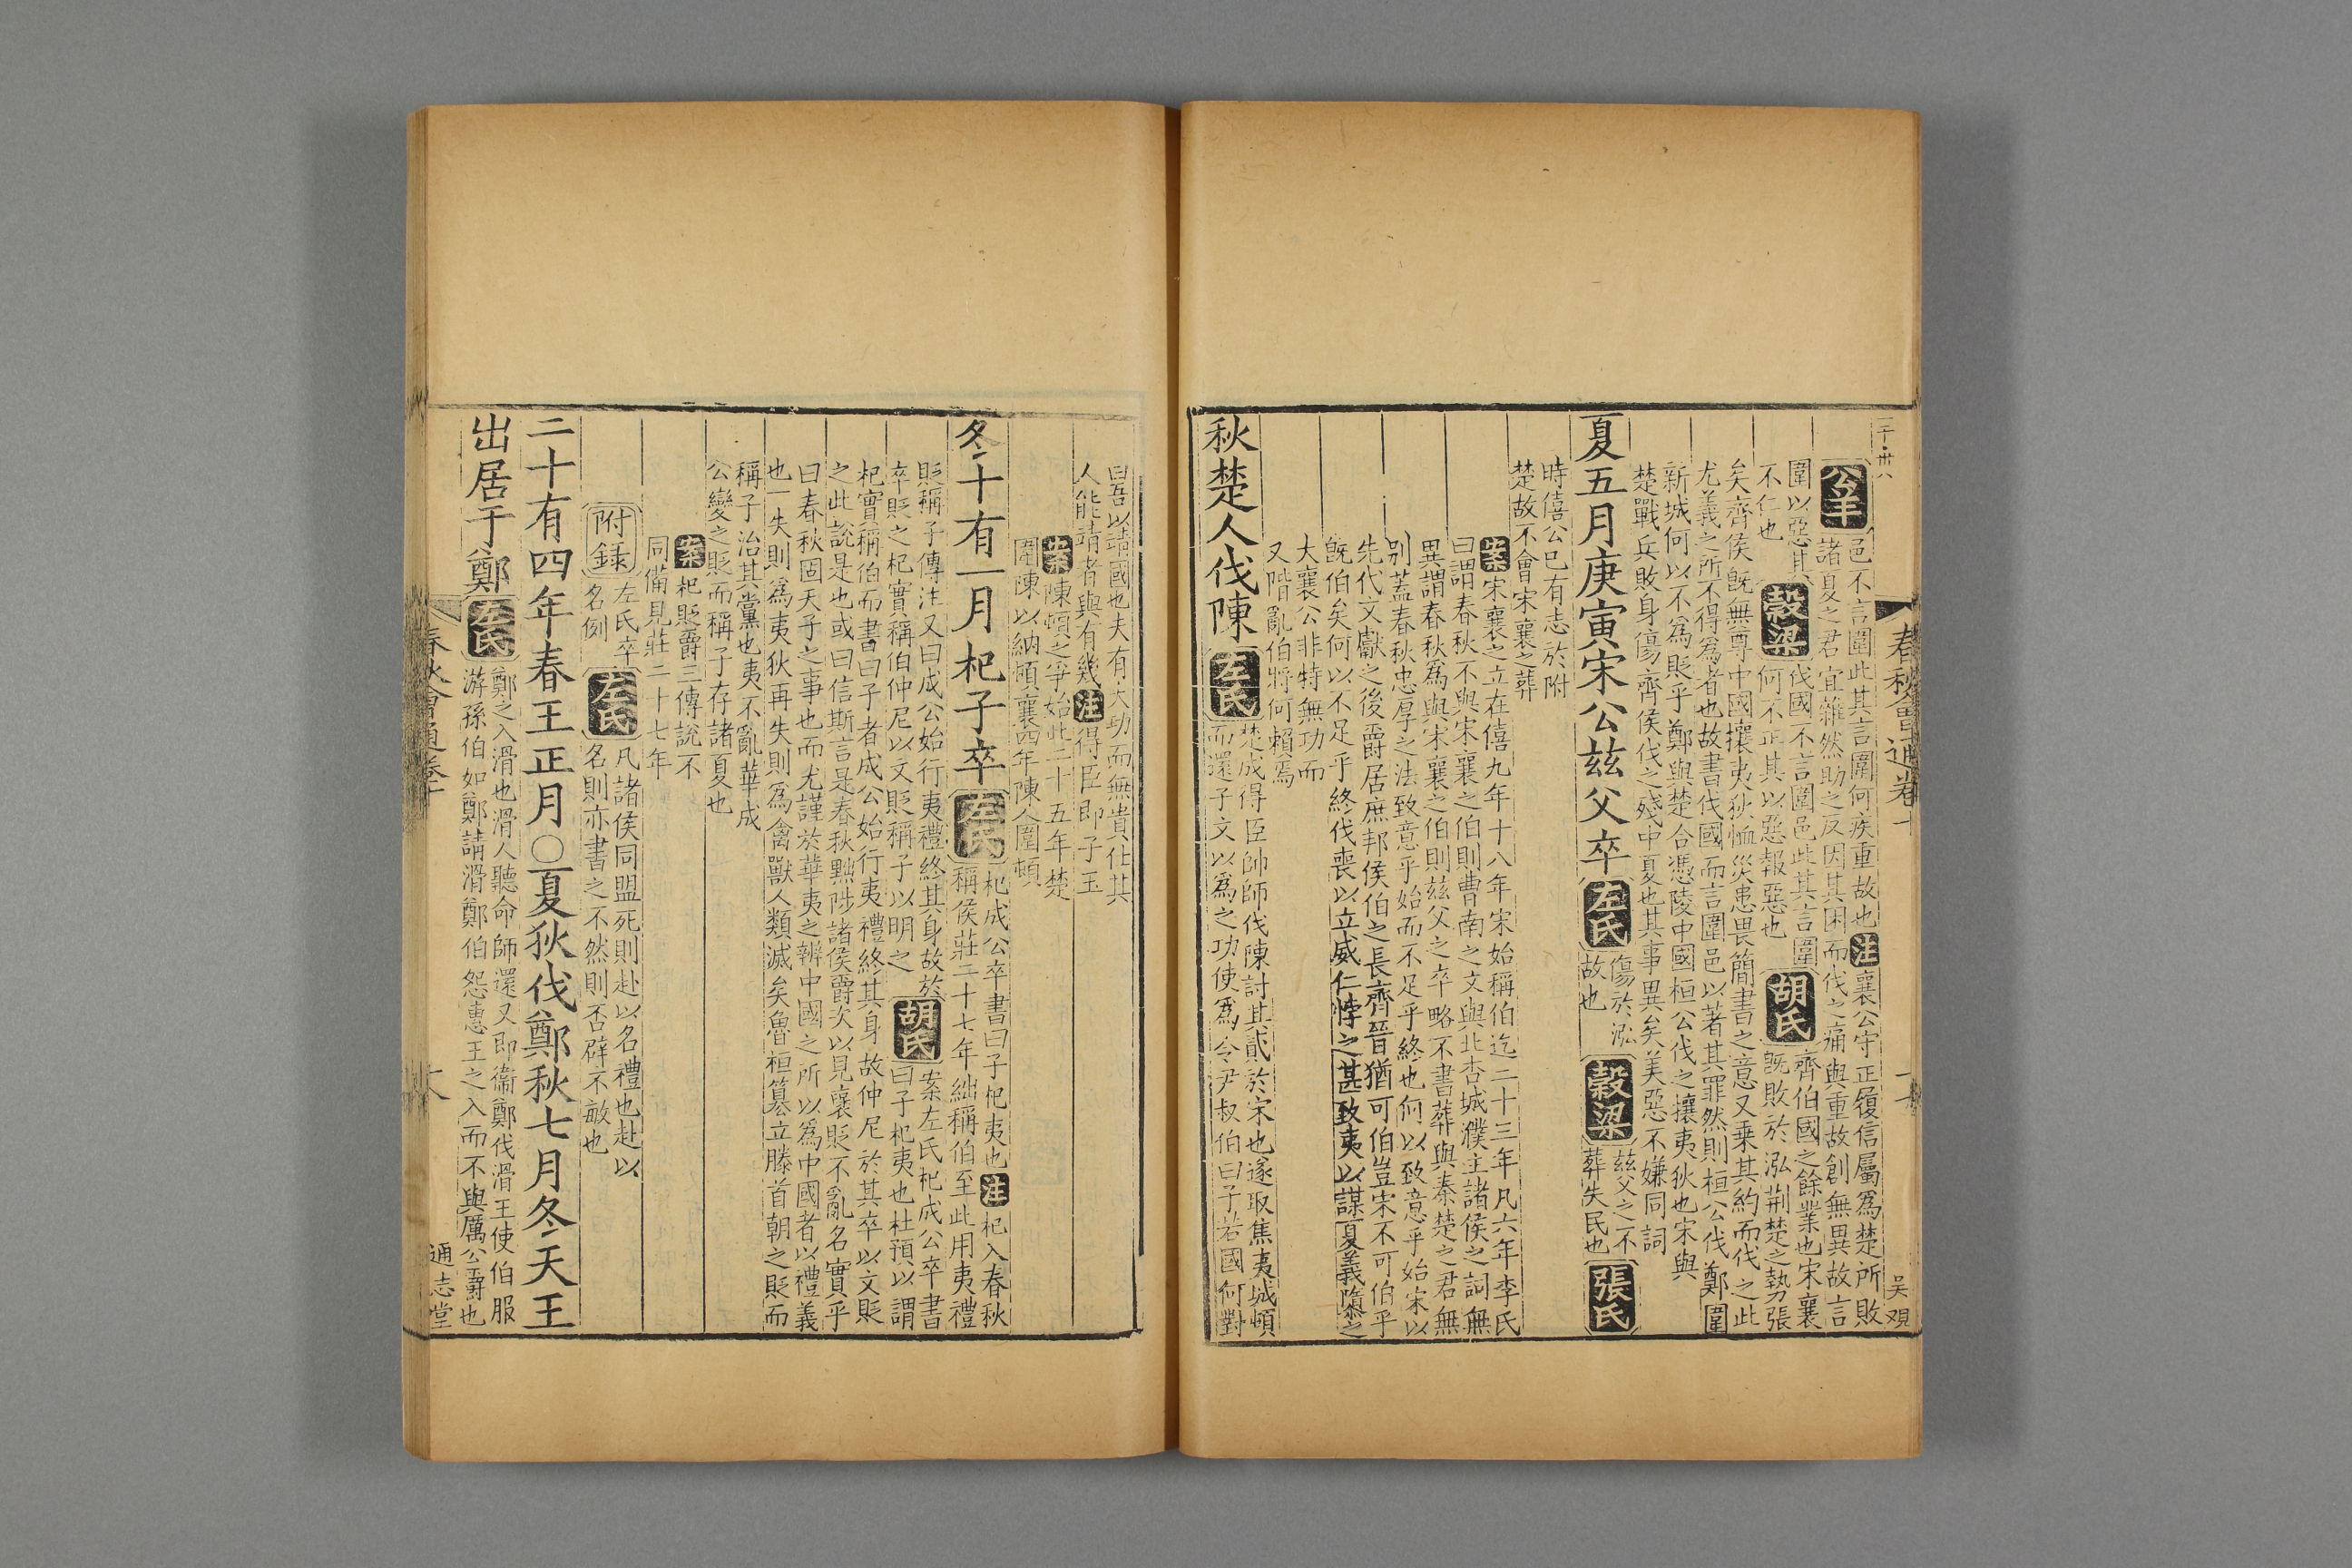 公羊
邑不言圍此其言圍何疾重故也注襄公守正履信屬爲楚所敗
諸夏之君宜雜然助之反因其困而伐之痛與重故創無異故言
圍以惡其
不仁也
穀梁
伐國不言圍邑此其言圍
何不正其以惡報惡也
胡氏
齊伯國之餘業也宋襄
旣敗於泓荆楚之勢張
矣齊侯旣無尊中國攘夷狄恤災患畏簡書之意又乗其約而伐之此
尤義之所不得爲者也故書伐國而言圍邑以著其罪然則桓公伐鄭圍
新城何以不爲貶乎鄭與楚合憑陵中國桓公伐之攘夷狄也宋與
楚戰兵敗身傷齊侯伐之殘中夏也其事異矣美惡不嫌同詞
夏五月庚寅宋公茲父卒
左氏
傷於泓
故也
穀梁
茲父之不
葬失民也
張氏
時僖公已有志於附
楚故不會宋襄之葬
案宋襄之立在僖九年十八年宋始稱伯迄二十三年凡六年李氏
曰謂春秋不與宋襄之伯則曹南之文與北杏城濮主諸侯之詞無
異謂春秋爲與宋襄之伯則茲父之卒略不書葬與秦楚之君無
別蓋春秋忠厚之法致意乎始而不足乎終也何以致意乎始宋以
先代文獻之後爵居庶邦侯伯之長齊晉猶可伯豈宋不可伯乎
旣伯矣何以不足乎終伐喪以立威仁悖之甚致夷以謀夏義隳之
大襄公非特無功而
又階亂伯將何賴焉
秋楚人伐陳
左氏
楚成得臣帥師伐陳討其貳於宋也遂取焦夷城頓
而還子文以爲之功使爲令尹叔伯曰子若國何對
春秋會通卷十
吴观
曰吾以靖國也夫有大功而無貴仕其
人能靖者與有幾注得臣即子玉
案陳頓之爭始此二十五年楚
圍陳以納頓襄四年陳人圍頓
冬十有一月杞子卒
左氏
杞成公卒書曰子杞夷也注杞入春秋
稱侯莊二十七年絀稱伯至此用夷禮
貶稱子傳注又曰成公始行夷禮終其身故於
卒貶之杞實稱伯仲尼以文貶稱子以明之
胡氏
案左氏杞成公卒書
曰子杞夷也杜預以謂
杞實稱伯而書曰子者成公始行夷禮終其身故仲尼於其卒以文貶
之此說是也或曰信斯言是春秋黜陟諸侯爵次以見襃貶不亂名實乎
曰春秋固天子之事也而尤謹於華夷之辨中國之所以爲中國者以禮義
也一失則爲夷狄再失則爲禽獸人類滅矣魯桓簒立滕首朝之貶而
稱子治其黨也夷不亂華成
公變之貶而稱子存諸夏也
案杞貶爵三傳說不
同備見莊二十七年
附錄
左氏卒
名例
左氏
凡諸侯同盟死則赴以名禮也赴以
名則亦書之不然則否辟不敏也
二十有四年春王正月〇夏狄伐鄭秋七月冬天王
出居于鄭
左氏
鄭之入滑也滑人聽命師還又即衞鄭伐滑王使伯服
游孫伯如鄭請滑鄭伯怨惠王之入而不與厲公爵也
春秋會通卷十
通志堂